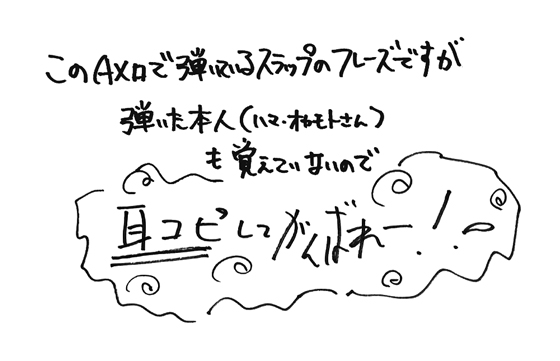 このAメロで弾いているスラップのフレーズですが
弾いた本人(ハマ・オカモトさん)
も覚えていないので
耳コピしてがんばれー!